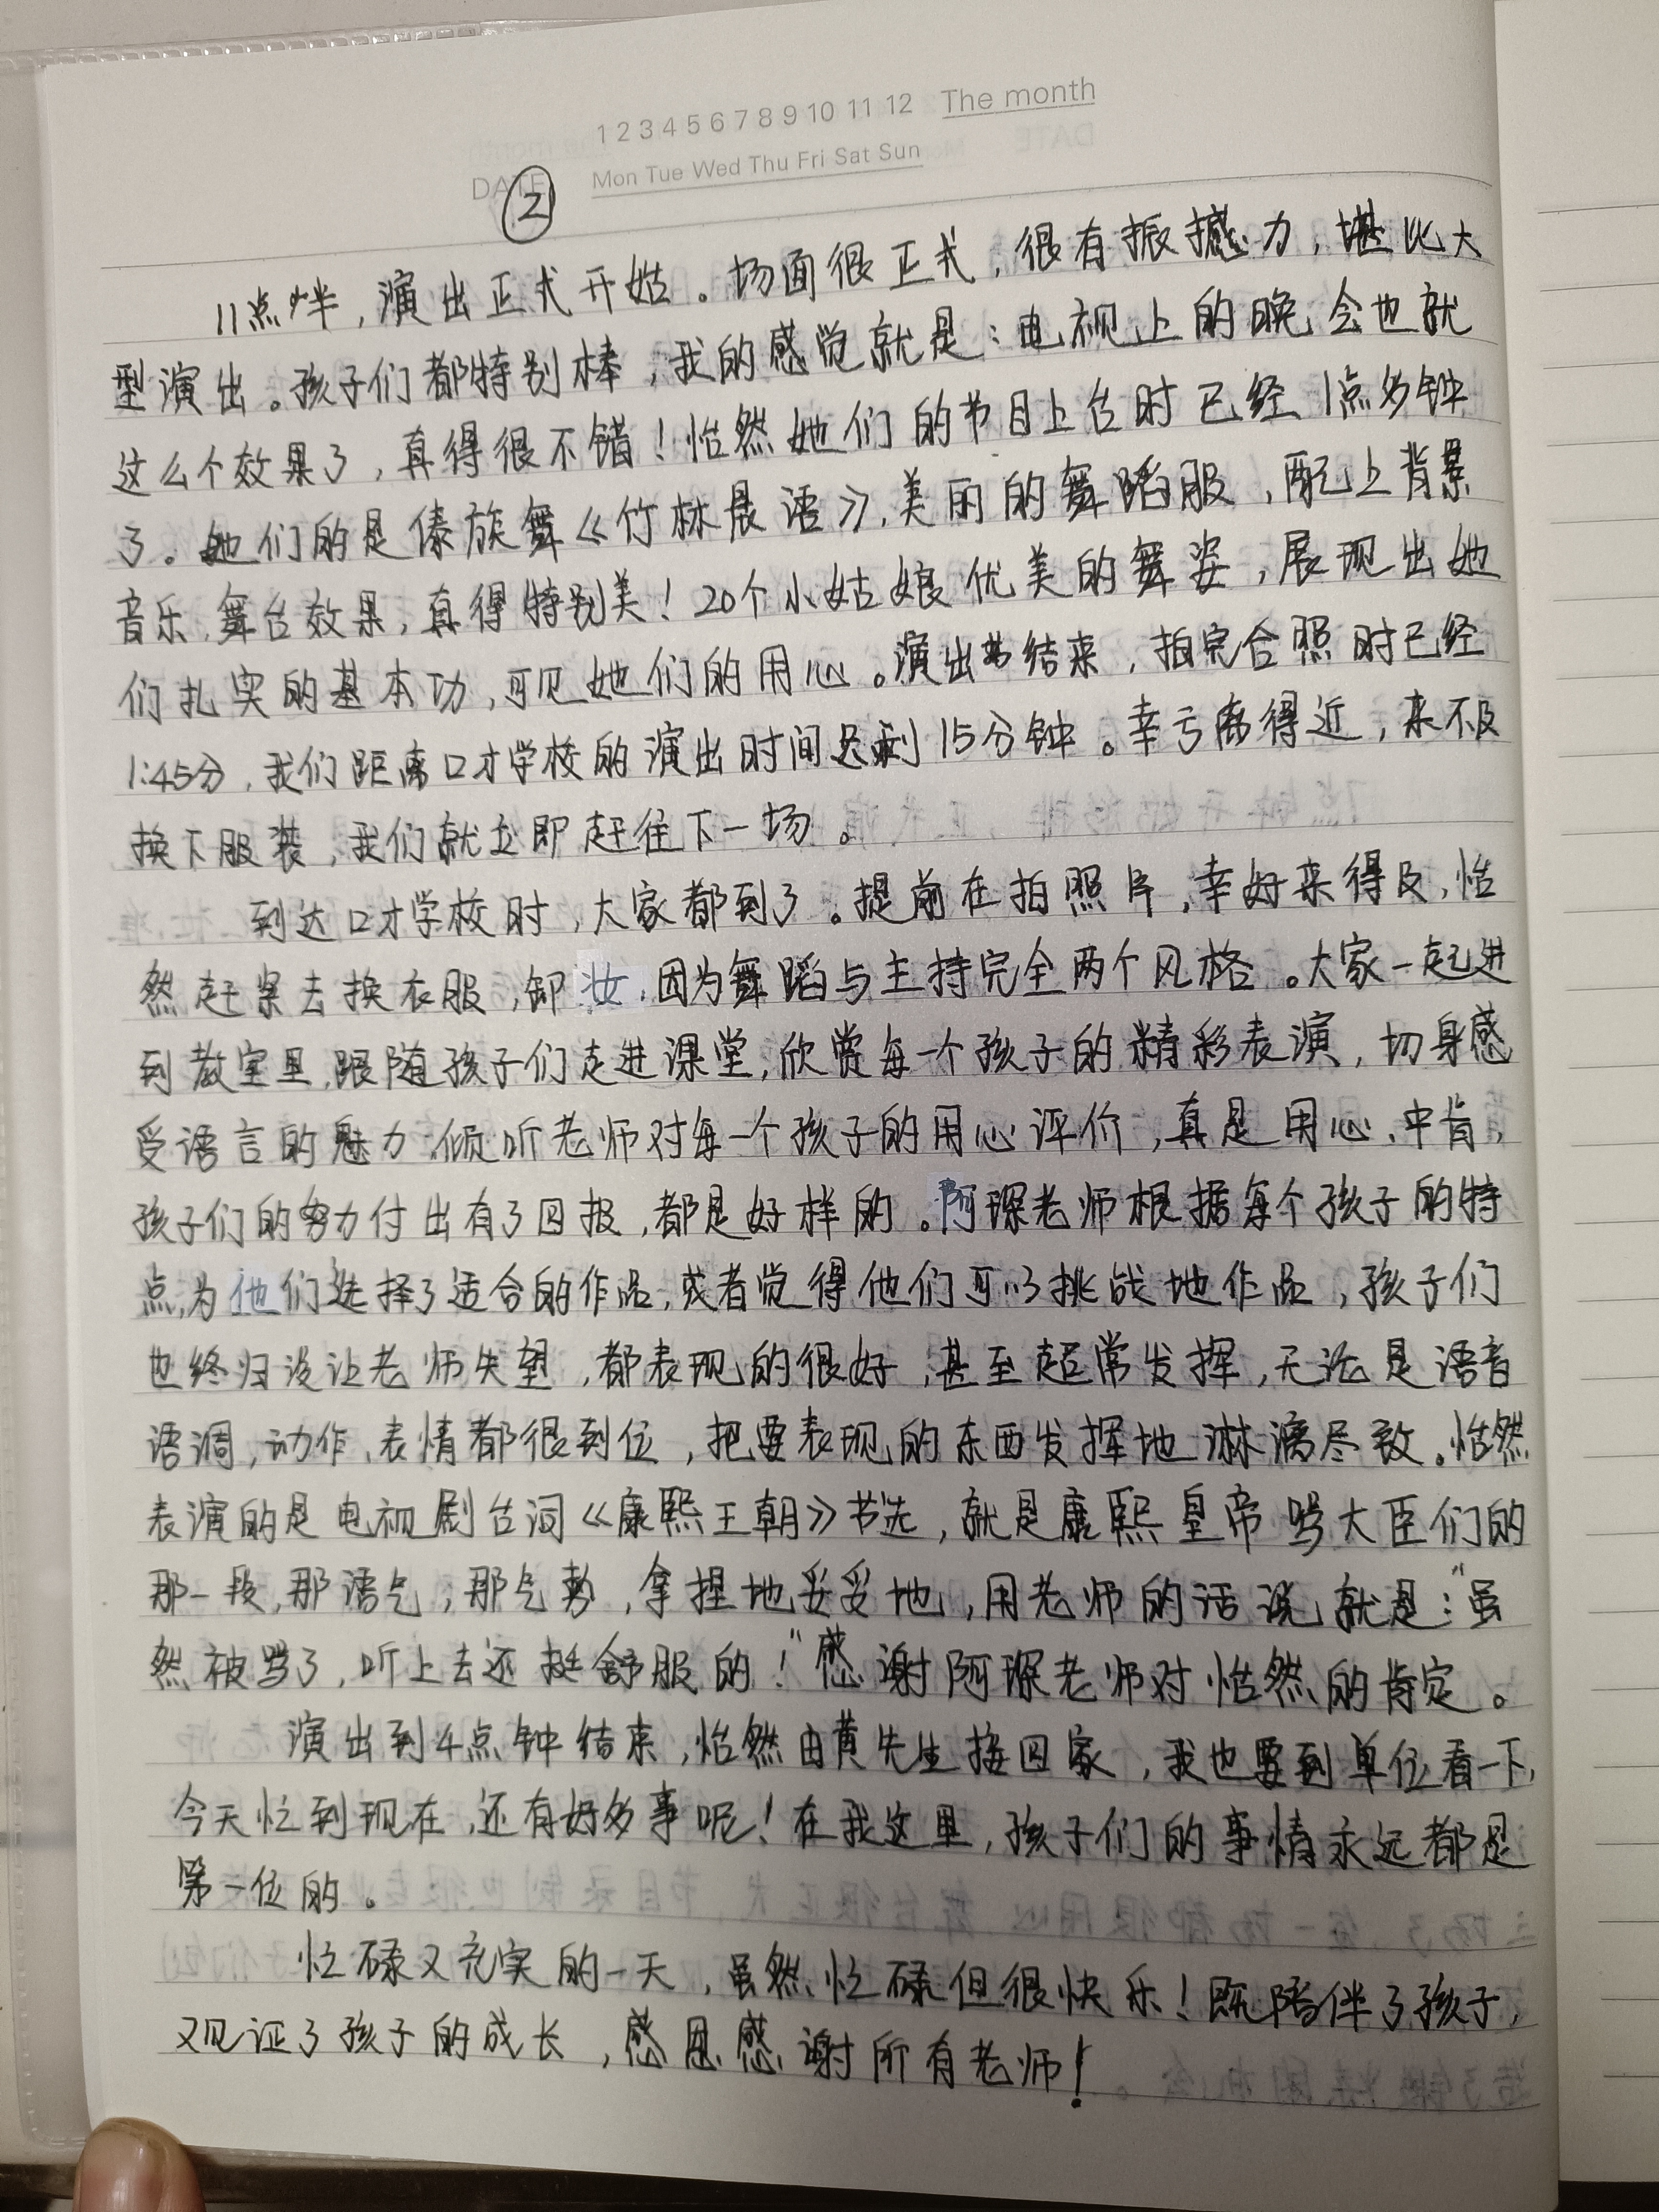 1 2 3 4 5 6 7 8 9 10 11 12 The month
DATE Mon Tue Wed Thu Fri Sat Sun
②
11点半,演出正式开始。场面很正式,很有振撼力,堪比大
型演出。孩子们都特别棒,我的感觉就是:电视上的晚会也就
这么个效果了,真得很不错!怡然她们的节目上台时已经1点多钟
了。她们的是傣族舞《竹林晨语》,美丽的舞蹈服,配上背景
音乐,舞台效果,真得特别美!20个小姑娘优美的舞姿,展现出她
们扎实的基本功,可见她们的用心。演出结束,拍完合照时已经
1:45分,我们距离口才学校的演出时间只剩15分钟。幸亏离得近,来不及
换下服装,我们就立即赶往下一场。
到达口才学校时,大家都到了。提前在拍照片,幸好来得及,怡
然赶紧去换衣服,卸妆,因为舞蹈与主持完全两个风格。大家一起进
到教室里,跟随孩子们走进课堂,欣赏每一个孩子的精彩表演,切身感
受语言的魅力,倾听老师对每一个孩子的用心评价,真是用心、中肯,
孩子们的努力付出有了回报,都是好样的。阿琛老师根据每个孩子的特
点,为他们选择了适合的作品,或者觉得他们可以挑战地作品,孩子们
也终归没让老师失望,都表现的很好,甚至超常发挥,无论是语音
语调,动作、表情都很到位,把要表现的东西发挥地淋漓尽致。怡然
表演的是电视剧台词《康熙王朝》节选,就是康熙皇帝骂大臣们的
那一段,那语气,那气势,拿捏地妥妥地,用老师的话说就是:“虽
然被骂了,听上去还挺舒服的!”感谢阿琛老师对怡然的肯定。
演出到4点钟结束,怡然由黄先生接回家,我也要到单位看一下,
今天忙到现在,还有好多事呢!在我这里,孩子们的事情永远都是
第一位的。
忙碌又充实的一天,虽然忙碌但很快乐!既陪伴了孩子,
又见证了孩子的成长,感恩感谢所有老师!